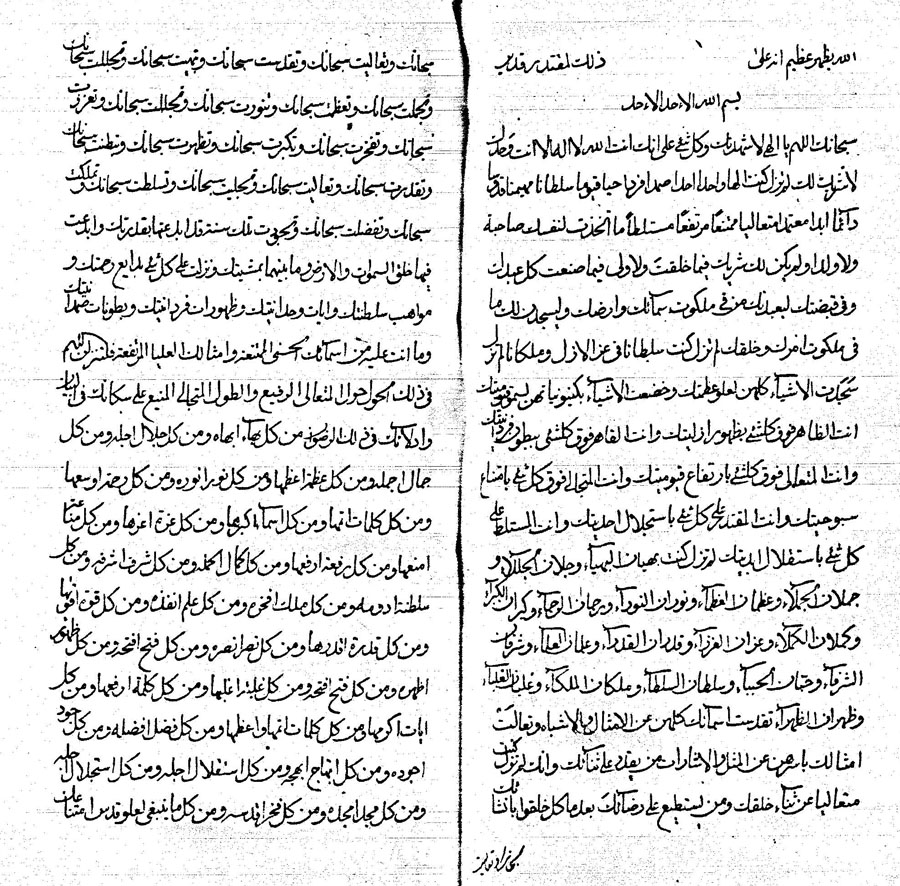 الله يظهر عظيم انه على ذلك لمقتدر قدير
بسم الله الاحد الاحد
سبحانك اللهم يا الهي لاشهدنك وكل شيء على انك انت الله لا اله الا انت وحدك
لا شريك لك لم تزل كنت الها واحدا احدا صمدا فردا حيا قيوما سلطانا مهيمنا قدوسا
دائما ابدا معتمدا متعاليا ممتنعا مرتفعا متسلطا ما اتخذت لنفسك صاحبة
ولا ولدا ولم يكن لك شريك فيما خلقت ولا ولي فيما صنعت كل عبادك
وفي قبضتك ليعبدنك من في ملكوت سمائك وارضك وليسجدن لك ما
في ملكوت امرك وخلقك لم تزل كنت سلطانا في عز الازل وملكا لم تزل
سجدت الاشياء كلهن لعلو عظمتك وخضعت الاشياء بكينونياتهن لسمو
انت الظاهر فوق كلشيء بظهور ازليتك وانت القاهر فوق كلشيء ببطون
وانت المتعالي فوق كلشيء بارتفاع قيوميتك وانت المتجالي فوق كل شيء بامتناع
سبوحيتك وانت المقتدر على كل شيء باستجلال احديتك وانت المتسلط على
كل شيء باستقلال لم تزل كنت بهيان البهياء وجلان الجللاء و
جملان الجملاء وعظمان العظماء ونوران النوراء ورحمان الرحماء وكبران الكبراء
وكملان الكملاء وعزان العززاء وقدران القدراء وعلمان العلماء وشرفان
الشرفاء وحبان الحبباء وسلطان السلطاء وملكان الملكاء وعليان العلياء
وظهران الظهراء تقدست اسمائك كلهن عن الامثال والاشباه وتعالت
امثالك باسرهن عن المثل والاشارات من يقدر على ثنائك وانك لم تزل كنت
متعاليا عن ثناء خلقك ومن يستطيع على رضائك بعد ما كل خلقوا
سبحانك وتعاليت سبحانك وتقدست سبحانك سبحانك وتجللت سبحانك
وتجملت سبحانك وتعظمت سبحانك وتنورت سبحانك وتجللت سبحانك وتعززت
سبحانك وتفخرت سبحانك وتكبرت سبحانك وتظهرت سبحانك وتبطنت سبحانك
وتقدرت سبحانك وتعاليت سبحانك وتجليت سبحانك وتسلطت سبحانك وتملكت
سبحانك وتفضلت سبحانك بقدرتك وابدعت
فيما خلق السموات والارض وما بينهما بمشيتك ونزلت على كل شيء بدايع رحمتك و
مواهب سلطنتك وايات وحدانيتك وظهورات فردانيتك وبطونات
وما انت عليه من اسمائك الحسنى الممتنعة وامثالك العليا المرتفعة فلتنزلن اللهم
في ذلك المتعالي الرفيع والطول المتجالي المنيع على سكانك في البيان
وادلائك في ذلك الرضوان من كل بهاء ابهاه ومن كل جلال اجله ومن كل
جمال اجمله ومن كل عظمة اعظمها ومن كل نور انوره ومن كل رحمة اوسعها
ومن كل كلمات اتمها ومن كل اسماء اكبرها ومن كل عزة اعزها ومن كل
امنعها ومن كل رفعة ارفعها ومن كل كمال اكمله ومن كل شرف اشرفه ومن كل
سلطنة ادومه ومن كل ملك افخره ومن كل علم انفذه ومن كل قوة اقويها
ومن كل قدرة اقدرها ومن كل نصر انصره ومن كل فتح افتحه ومن كل ظهور
اظهره ومن كل فتح افتحه ومن كل غلبة اغلبها ومن كل كلمة ارفعها ومن كل
ايات اكرمها ومن كل كلمات اتمها واعظمها ومن كل فضل افضله ومن كل جود
اجوده ومن كل ابتهاج ابهجه ومن كل استقلال اجله ومن كل استجلال
ومن كل مجد امجده ومن كل فخر ومن كل ما ينبغي لعلو قدس